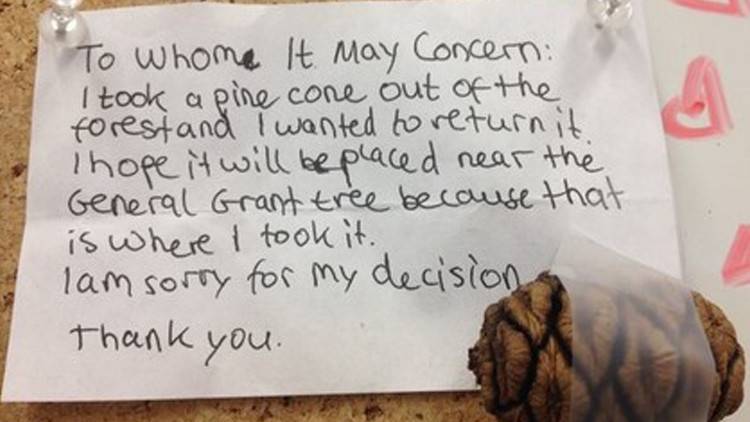 To Whome It May Concern:
I took a pine cone out of the
forest and I wanted to return it.
I hope it will be placed near the
General Grant tree because that
is where I took it.
I am sorry for my decision
Thank you.